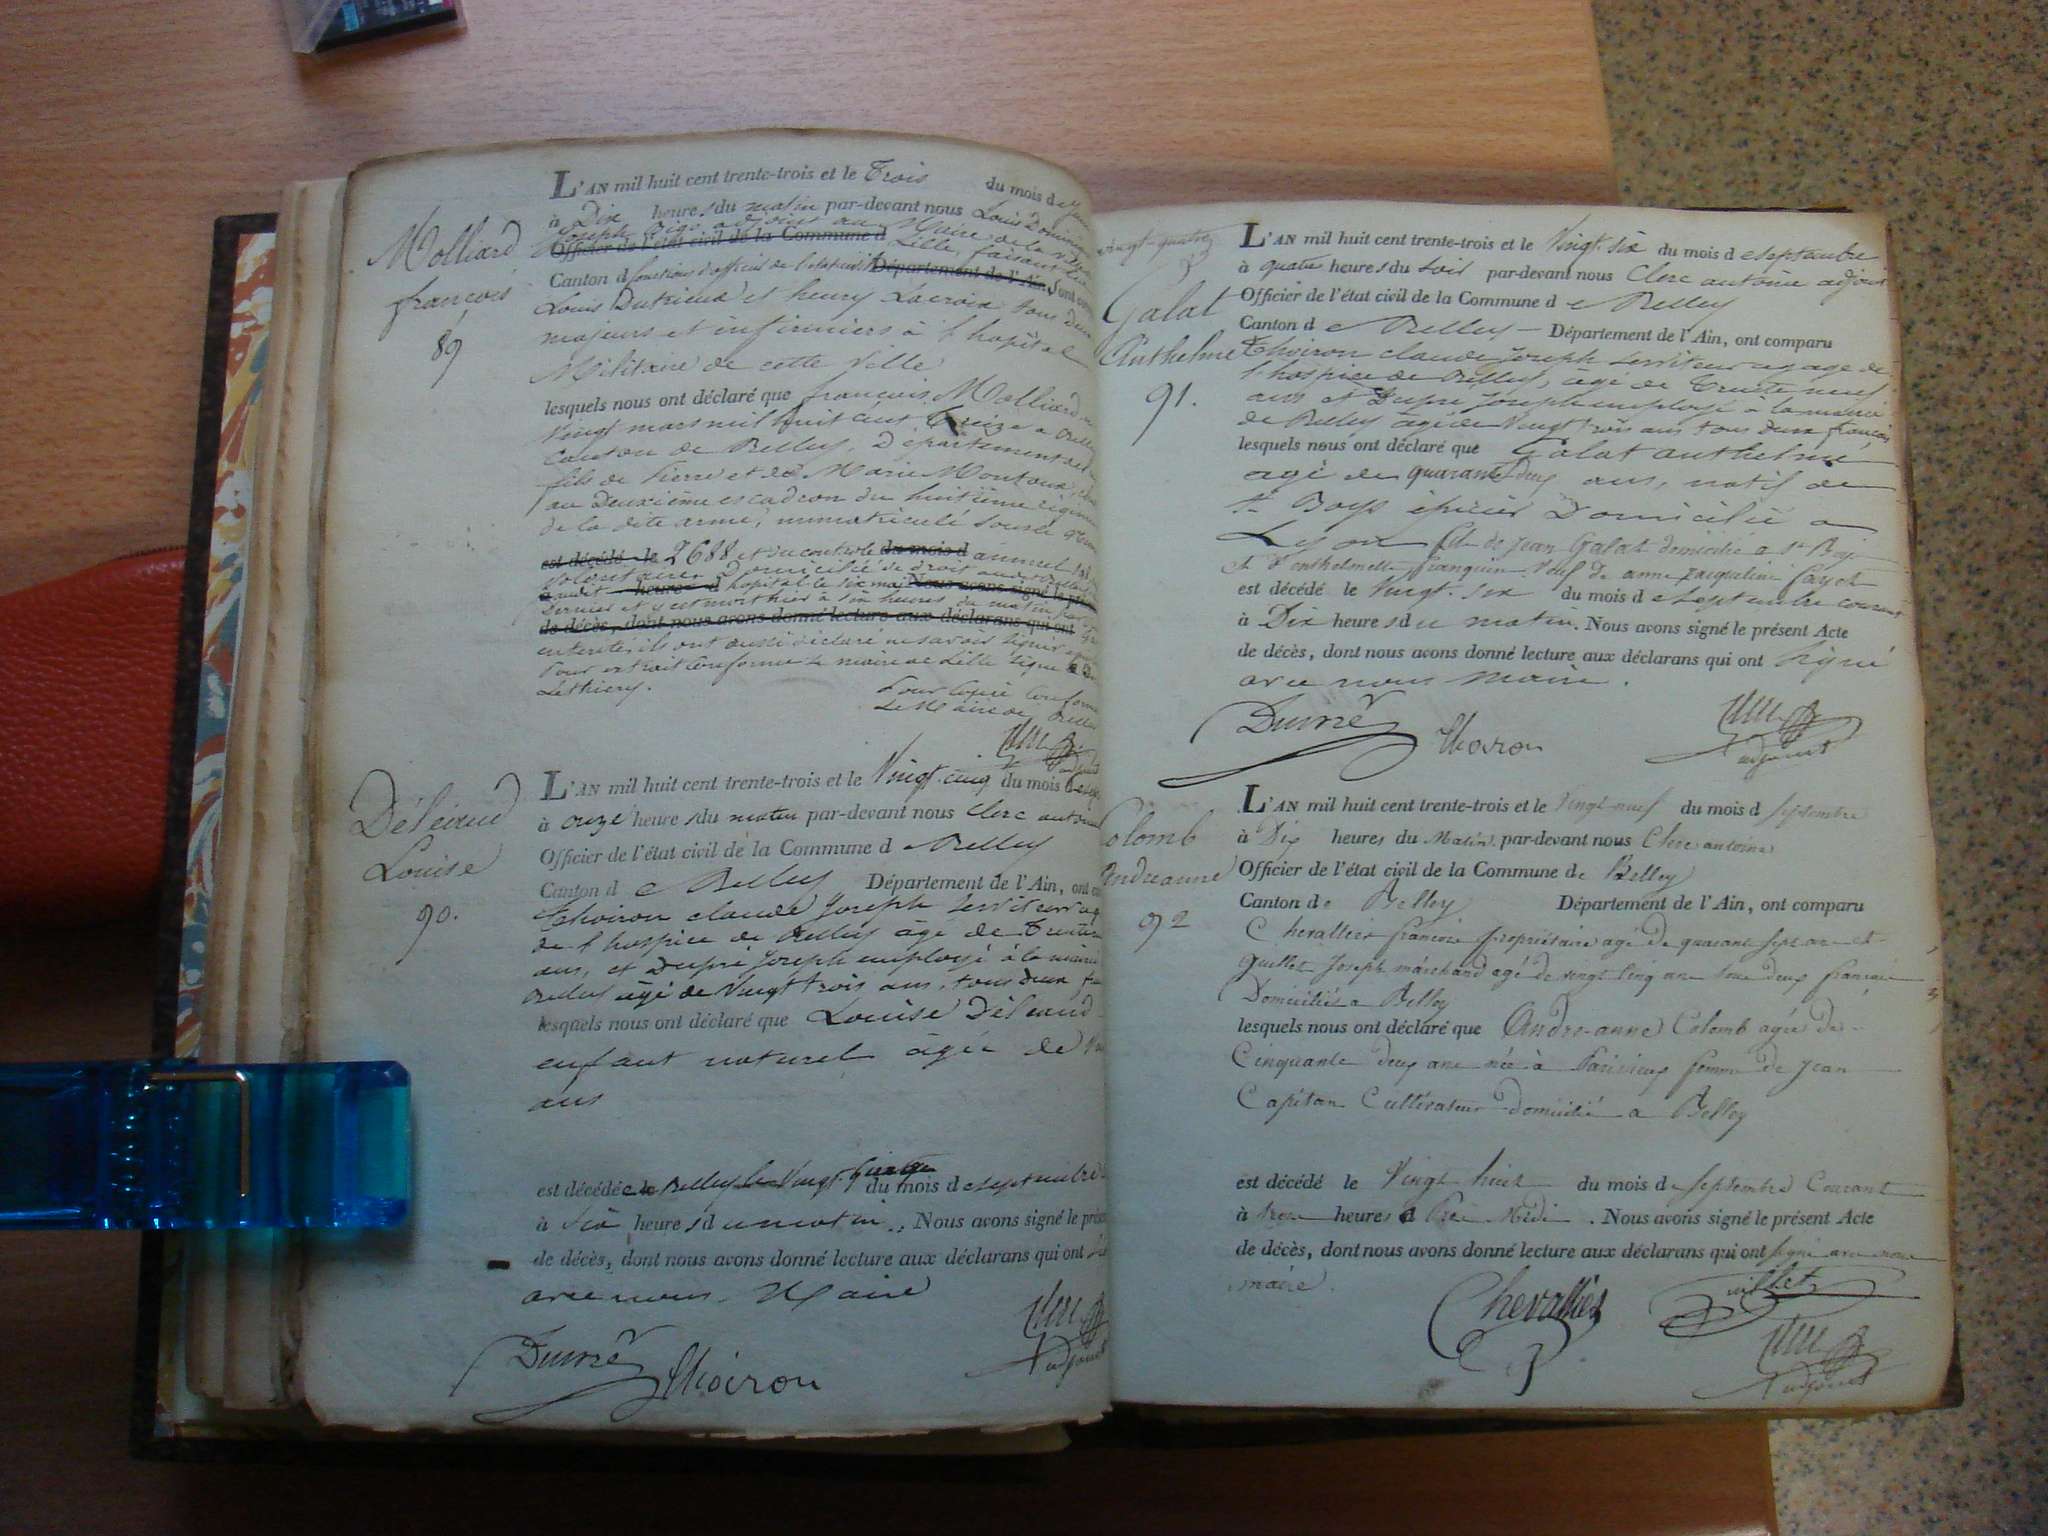 Molliard
françois
89
L'AN mil huit cent trente-trois et le Trois du mois d
à Dix heures du matin par-devant nous Louis Dominique
Joseph adjoint au Maire de la ville
Officier de l'état civil de la Commune d Lille, faisant les
Canton d fonctions d'officier de l'état civil Département de l'Ain Sont
Louis Dutrieux et henry Lacroix tous deux
majeurs et infirmiers à l'hopital
Militaire de cette Ville
lesquels nous ont déclaré que françois Molliard
Vingt mars mil huit cent treize a Belley
canton de Belley, Département de
fils de Pierre et de Marie Montoux,
au Deuxième escadron du huitième régiment
de la dite arme, immatriculé sous le
est décédé le 2688 et du controle du mois d annuel
Volontaire Domicilié de droit
audit heures d hopital le six mai Nous avons signé le présent
Dernier et y est mort hier à six heures du matin
de décès, dont nous avons donné lecture aux déclarans qui ont
ils ont aussi déclaré ne savoir signer
Pour extrait conforme le maire de Lille signé
Lethierry.
Pour Copie Conforme
Le Maire de Belley
adjoint
Déléaud
Louise
90.
L'AN mil huit cent trente-trois et le Vingt-cinq du mois de
à onze heures du matin par-devant nous Clerc antoine
Officier de l'état civil de la Commune d e Belley
Canton d e Belley Département de l'Ain, ont
Thoiron claude Joseph Serviteur
de l'hospice de Belley âgé de Trente
ans, et Dupré Joseph employé à la mairie
Belley âgé de Vingt trois ans, tous deux
lesquels nous ont déclaré que Louise Déléaud
enfant naturel âgée de
ans
est décédée a Belley le Vingt du mois de septembre
à Six heures du matin. Nous avons signé le présent
de décès, dont nous avons donné lecture aux déclarans qui ont
avec nous Maire
Dupré
Thoiron
adjoint
vingt-quatre
Galat
Anthelme
91.
L'AN mil huit cent trente-trois et le Vingt-six du mois d e septembre
à quatre heures du soir par-devant nous Clerc antoine adjoint
Officier de l'état civil de la Commune d e Belley
Canton d e Belley Département de l'Ain, ont comparu
Thoiron claude Joseph serviteur a gage de
l'hospice de Belley, âgé de Trente neuf
ans et Dupré Joseph employé à la mairie
de Belley âgé de Vingt trois ans tous deux français
lesquels nous ont déclaré que Galat anthelme
agé de quarante deux ans, natif de
St Boys épicier Domicilié a
Lyon fils de Jean Galat domicilié a St Boys
veuf de anne jacqueline
est décédé le Vingt-six du mois d e septembre courant
à Dix heures du matin. Nous avons signé le présent Acte
de décès, dont nous avons donné lecture aux déclarans qui ont signé
avec nous maire.
Dupré
Thoiron
adjoint
Colomb
Andreanne
92
L'AN mil huit cent trente-trois et le Vingt-neuf du mois d septembre
à Dix heures du Matin par-devant nous Clerc antoine
Officier de l'état civil de la Commune de Belley
Canton de Belley Département de l'Ain, ont comparu
Chevallier françois propriétaire agé de quarant sept ans et
Guillet Joseph marchand agé de vingt cinq ans tous deux français
Domiciliés a Belley
lesquels nous ont déclaré que Andre-anne Colomb agée de
Cinquante deux ans née à femme de Jean
Capitan Cultivateur domicilié a Belley
est décédé le Vingt huit du mois de septembre Courant
à heures Midi. Nous avons signé le présent Acte
de décès, dont nous avons donné lecture aux déclarans qui ont signé avec nous
maire.
Chevallier
Guillet
adjoint